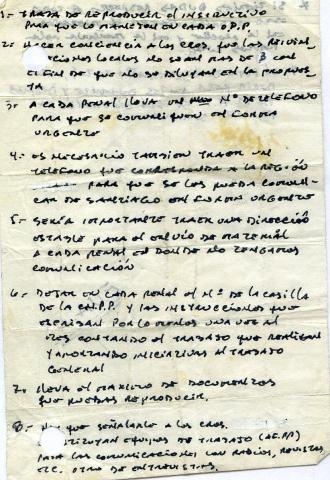 1.- TRATA DE REPRODUCIR EL INSTRUCTIVO
PARA QUE LO MANEJEN EN CADA O.P.P.
2.- HACER CONCIENCIA A LOS CROS. QUE LAS REIVIN_
CACIONES LOCALES NO SEAN MAS DE 3 CON
EL FIN DE QUE NO SE DILUYAN EN LA PROPUES_
TA
3.- A CADA PENAL LLEVA UN Nº DE TELEFONO
PARA QUE SE COMUNIQUEN EN FORMA
URGENTE
4.- ES NECESARIO TAMBIEN TRAER UN
TELEFONO QUE CORRESPONDA A LA REGIÓN
PARA QUE SE LES PUEDA COMUNI_
CAR DE SANTIAGO EN FORMA URGENTE
5.- SERÍA IMPORTANTE TRAER UNA DIRECCIÓN
ESTABLE PARA EL ENVIO DE MATERIAL
A CADA PENAL EN DONDE NO TENGAMOS
COMUNICACIÓN
6.- DEJAR EN CADA PENAL EL Nº DE LA CASILLA
DE LA C.N.P.P. Y LAS INSTRUCCIONES QUE
ESCRIBAN POR LO MENOS UNA VEZ AL
MES CONTANDO EL TRABAJO QUE REALIZAN
Y APORTANDO INICIATIVAS AL TRABAJO
GENERAL
7.- LLEVA EL MAXIMO DE DOCUMENTOS
QUE PUEDAS REPRODUCIR.
8.- QUE SEÑALARLE A LOS CROS.
EQUIPOS DE TRABAJO
PARA LAS COMUNICACIONES CON RADIOS, REVISTAS
ETC. OTRO DE ENTREVISTAS.